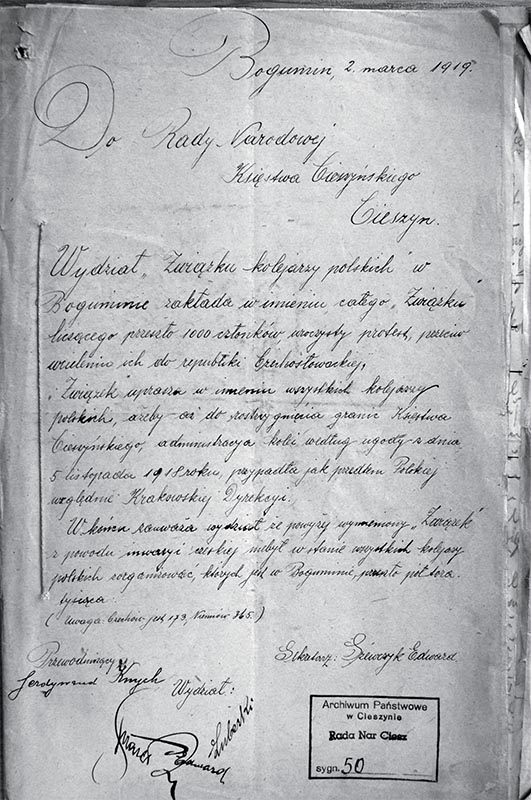 Bogumin, 2. marca 1919.
Do Rady Narodowej
Księstwa Cieszyńskiego
Cieszyn.
Wydział „Związku kolejarzy polskich" w
Boguminie zakłada w imieniu całego „Związku"
liczącego przeszło 1000 członków uroczysty protest, przeciw
wcieleniu ich do republiki Czechosłowackiej,
„Związek" uprasza w imieniu wszystkich kolejarzy
polskich, ażeby aż do rozstrzygnięcia granic Księstwa
Cieszyńskiego, administracja kolei według ugody z dnia
5 listopada 1918 roku, przypadła jak przedtem Polskiej
względnie Krakowskiej Dyrekcyi.
W końcu zauważa wydział że powyżej wymieniony „Związek"
z powodu inwazyi czeskiej niebył w stanie wszystkich kolejarzy
polskich zorganizować, których jest w Boguminie, przeszło półtora
tysiąca.
(Uwaga: Czechów jest 173, Niemców 365.)
Przewodniczący: Sekretarz: Szewczyk Edward
Ferdynand Wydział:
Edward
Archiwum Państwowe
w Cieszynie
Rada Nar Ciesz
sygn. 50